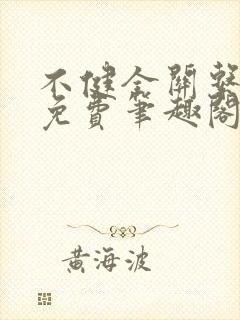 不健全關系
免費筆趣閣
黃海波